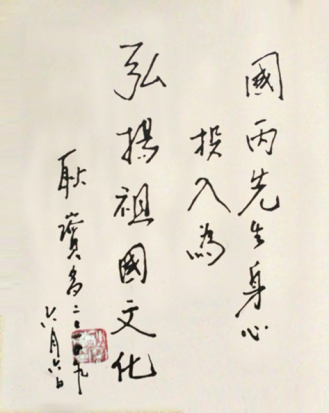 國丙先生身心
投入為
弘揚祖國文化
耿寶昌二〇〇九
六月六日